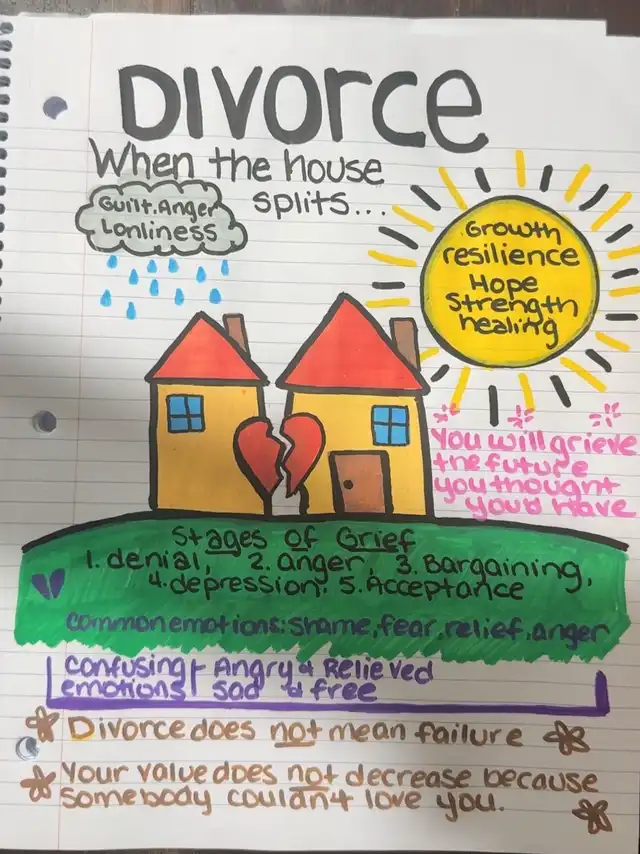 DIVORCE
When the house
splits...
Guilt.Anger
Lonliness
Growth
resilience
Hope
Strength
healing
You will grieve
the future
you thought
you'd have
Stages of Grief
1. denial, 2. anger, 3. Bargaining,
4. depression. 5. Acceptance
common emotions: shame, fear, relief, anger
Confusing Angry & Relieved
emotions Sad & free
Divorce does not mean failure
Your value does not decrease because
somebody couldn't love you.